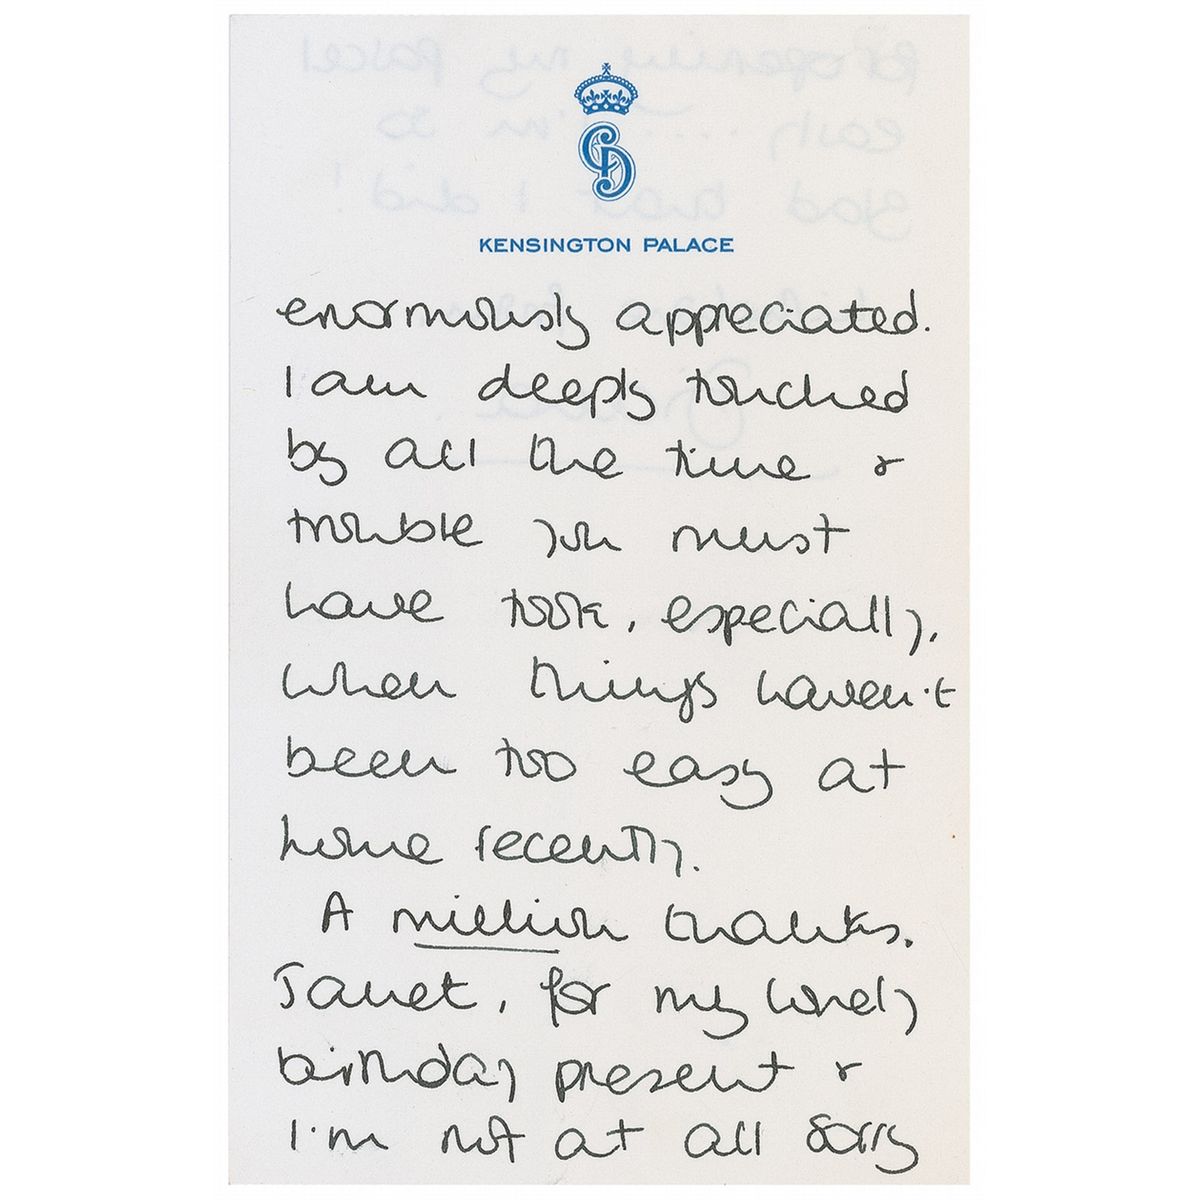 KENSINGTON PALACE
enormously appreciated.
I am deeply touched
by all the time &
trouble you must
have took, especially,
when things haven't
been too easy at
home recently.
A million thanks,
Janet, for my lovely
birthday present &
I'm not at all sorry